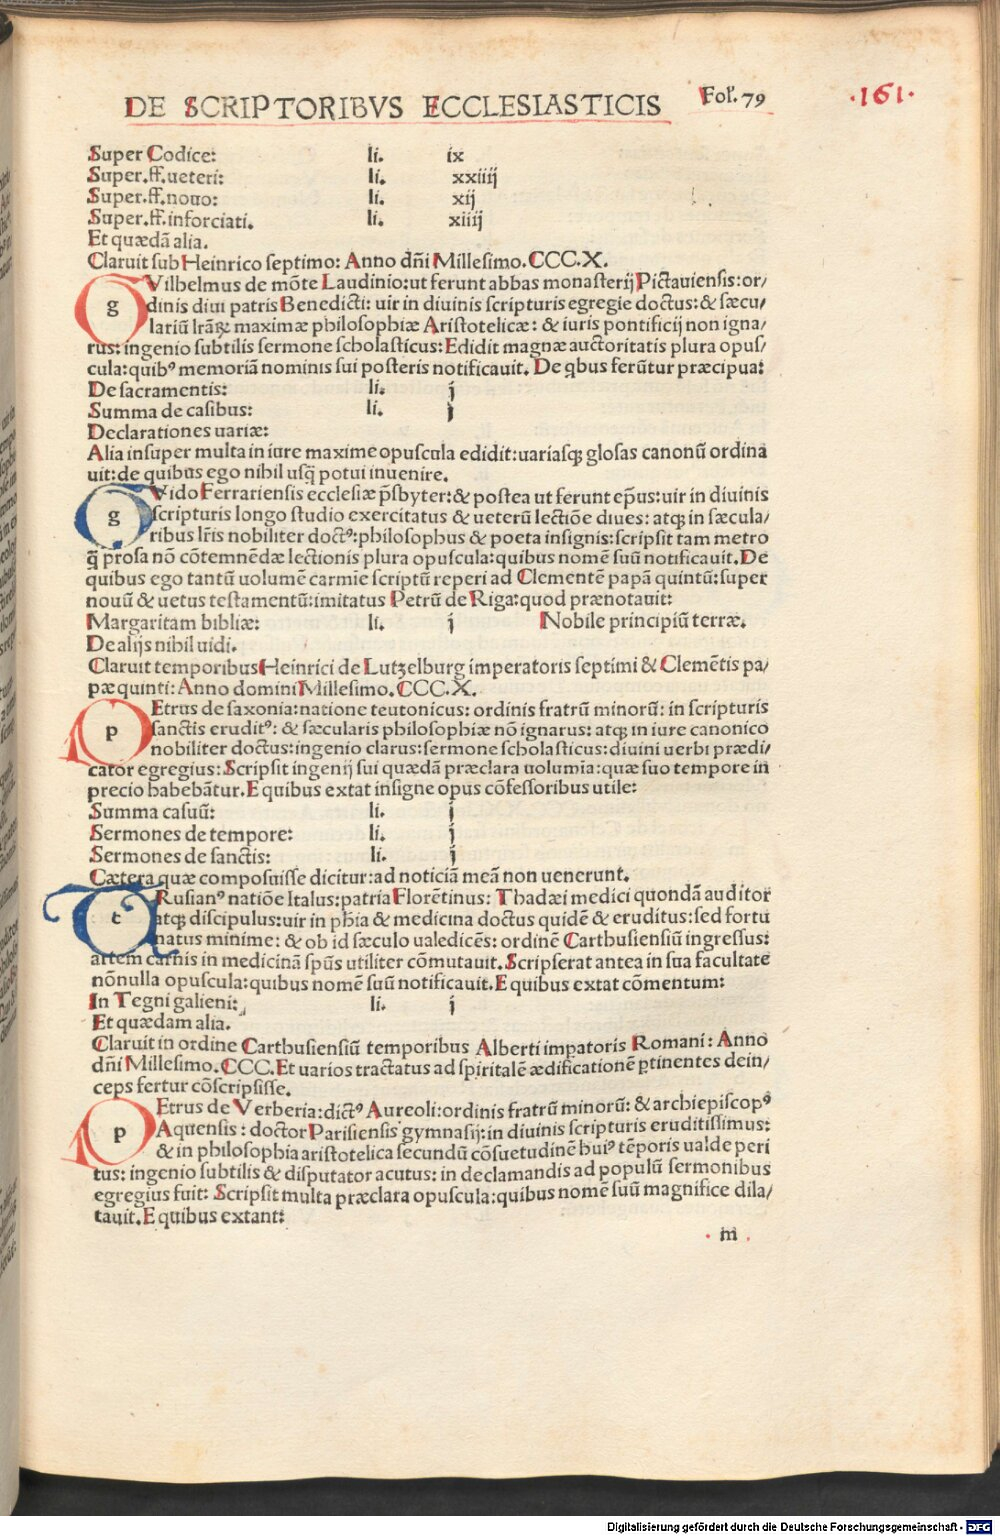 DE SCRIPTORIBVS ECCLESIASTICIS Fol. 79 ·161·
Super Codice: li. ix
Super.ff.ueteri: li. xxiiij
Super.ff.nouo: li. xij
Super.ff.inforciati. li. xiiij
Et quædã alia.
Claruit sub Heinrico septimo: Anno dñi Millesimo.CCC.X.
gVilhelmus de mõte Laudinio:ut ferunt abbas monasterij Pictauiensis:or/
dinis diui patris Benedicti: uir in diuinis scripturis egregie doctus:& sæcu/
lariũ lrãꝝ maximæ philosophiæ Aristotelicæ: & iuris pontificij non igna/
rus: ingenio subtilis sermone scholasticus: Edidit magnæ auctoritatis plura opus/
cula:quibꝰ memoriã nominis sui posteris notificauit. De qbus ferũtur præcipua:
De sacramentis: li. j
Summa de casibus: li. j
Declarationes uariæ:
Alia insuper multa in iure maxime opuscula edidit:uariasqꝫ glosas canonũ ordina
uit: de quibus ego nihil usq̃ potui inuenire.
gVido Ferrariensis ecclesiæ p̃sbyter:& postea ut ferunt ep̃us: uir in diuinis
scripturis longo studio exercitatus & ueterũ lectiõe diues: atqꝫ in sæcula/
ribus lr̃is nobiliter doctꝰ:philosophus & poeta insignis: scripsit tam metro
q̃ prosa nõ cõtemnẽdæ lectionis plura opuscula: quibus nomẽ suũ notificauit. De
quibus ego tantũ uolumẽ carmĩe scriptũ reperi ad Clementẽ papã quintũ: super
nouũ & uetus testamentũ: imitatus Petrũ de Riga: quod prænotauit:
Margaritam bibliæ: li. j Nobile principiũ terræ.
De alijs nihil uidi.
Claruit temporibus Heinrici de Lutzelburg imperatoris septimi & Clemẽtis pa/
pæ quinti: Anno domini Millesimo. CCC.X.
pEtrus de saxonia: natione teutonicus: ordinis fratrũ minorũ: in scripturis
sanctis eruditꝰ: & sæcularis philosophiæ nõ ignarus: atqꝫ in iure canonico
nobiliter doctus: ingenio clarus: sermone scholasticus: diuini uerbi prædi/
cator egregius: Scripsit ingenij sui quædã præclara uolumĩa: quæ suo tempore in
precio habebãtur. E quibus extat insigne opus cõfessoribus utile:
Summa casuũ: li. j
Sermones de tempore: li. j
Sermones de sanctis: li. j
Cætera quæ composuisse dicitur: ad noticiã meã non uenerunt.
tRusianꝰ natiõe Italus: patria Florẽtinus: Thadæi medici quondã auditor
atqꝫ discipulus: uir in phĩa & medicina doctus quidẽ & eruditus: sed fortu
natus minime: & ob id sæculo ualedicẽs: ordinẽ Carthusiensiũ ingressus:
artem carnis in medicinã spũs utiliter cõmutauit. Scripserat antea in sua facultate
nõnulla opuscula: quibus nomẽ suũ notificauit. E quibus extat cõmentum:
In Tegni galieni: li. j
Et quædam alia.
Claruit in ordine Carthusiensiũ temporibus Alberti impatoris Romani: Anno
dñi Millesimo. CCC. Et uarios tractatus ad spiritalẽ ædificationẽ ꝑtinentes dein/
ceps fertur cõscripsisse.
pEtrus de Verberia: dictꝰ Aureoli: ordinis fratrũ minorũ: & archiepiscopꝰ
Aquensis: doctor Parisiensis gymnasij: in diuinis scripturis eruditissimus:
& in philosophia aristotelica secundũ cõsuetudinẽ huiꝰ tẽporis ualde peri
tus: ingenio subtilis & disputator acutus: in declamandis ad populũ sermonibus
egregius fuit: Scripsit multa præclara opuscula: quibus nomẽ suũ magnifice dila/
tauit. E quibus extant:
m
Digitalisierung gefördert durch die Deutsche Forschungsgemeinschaft - DFG